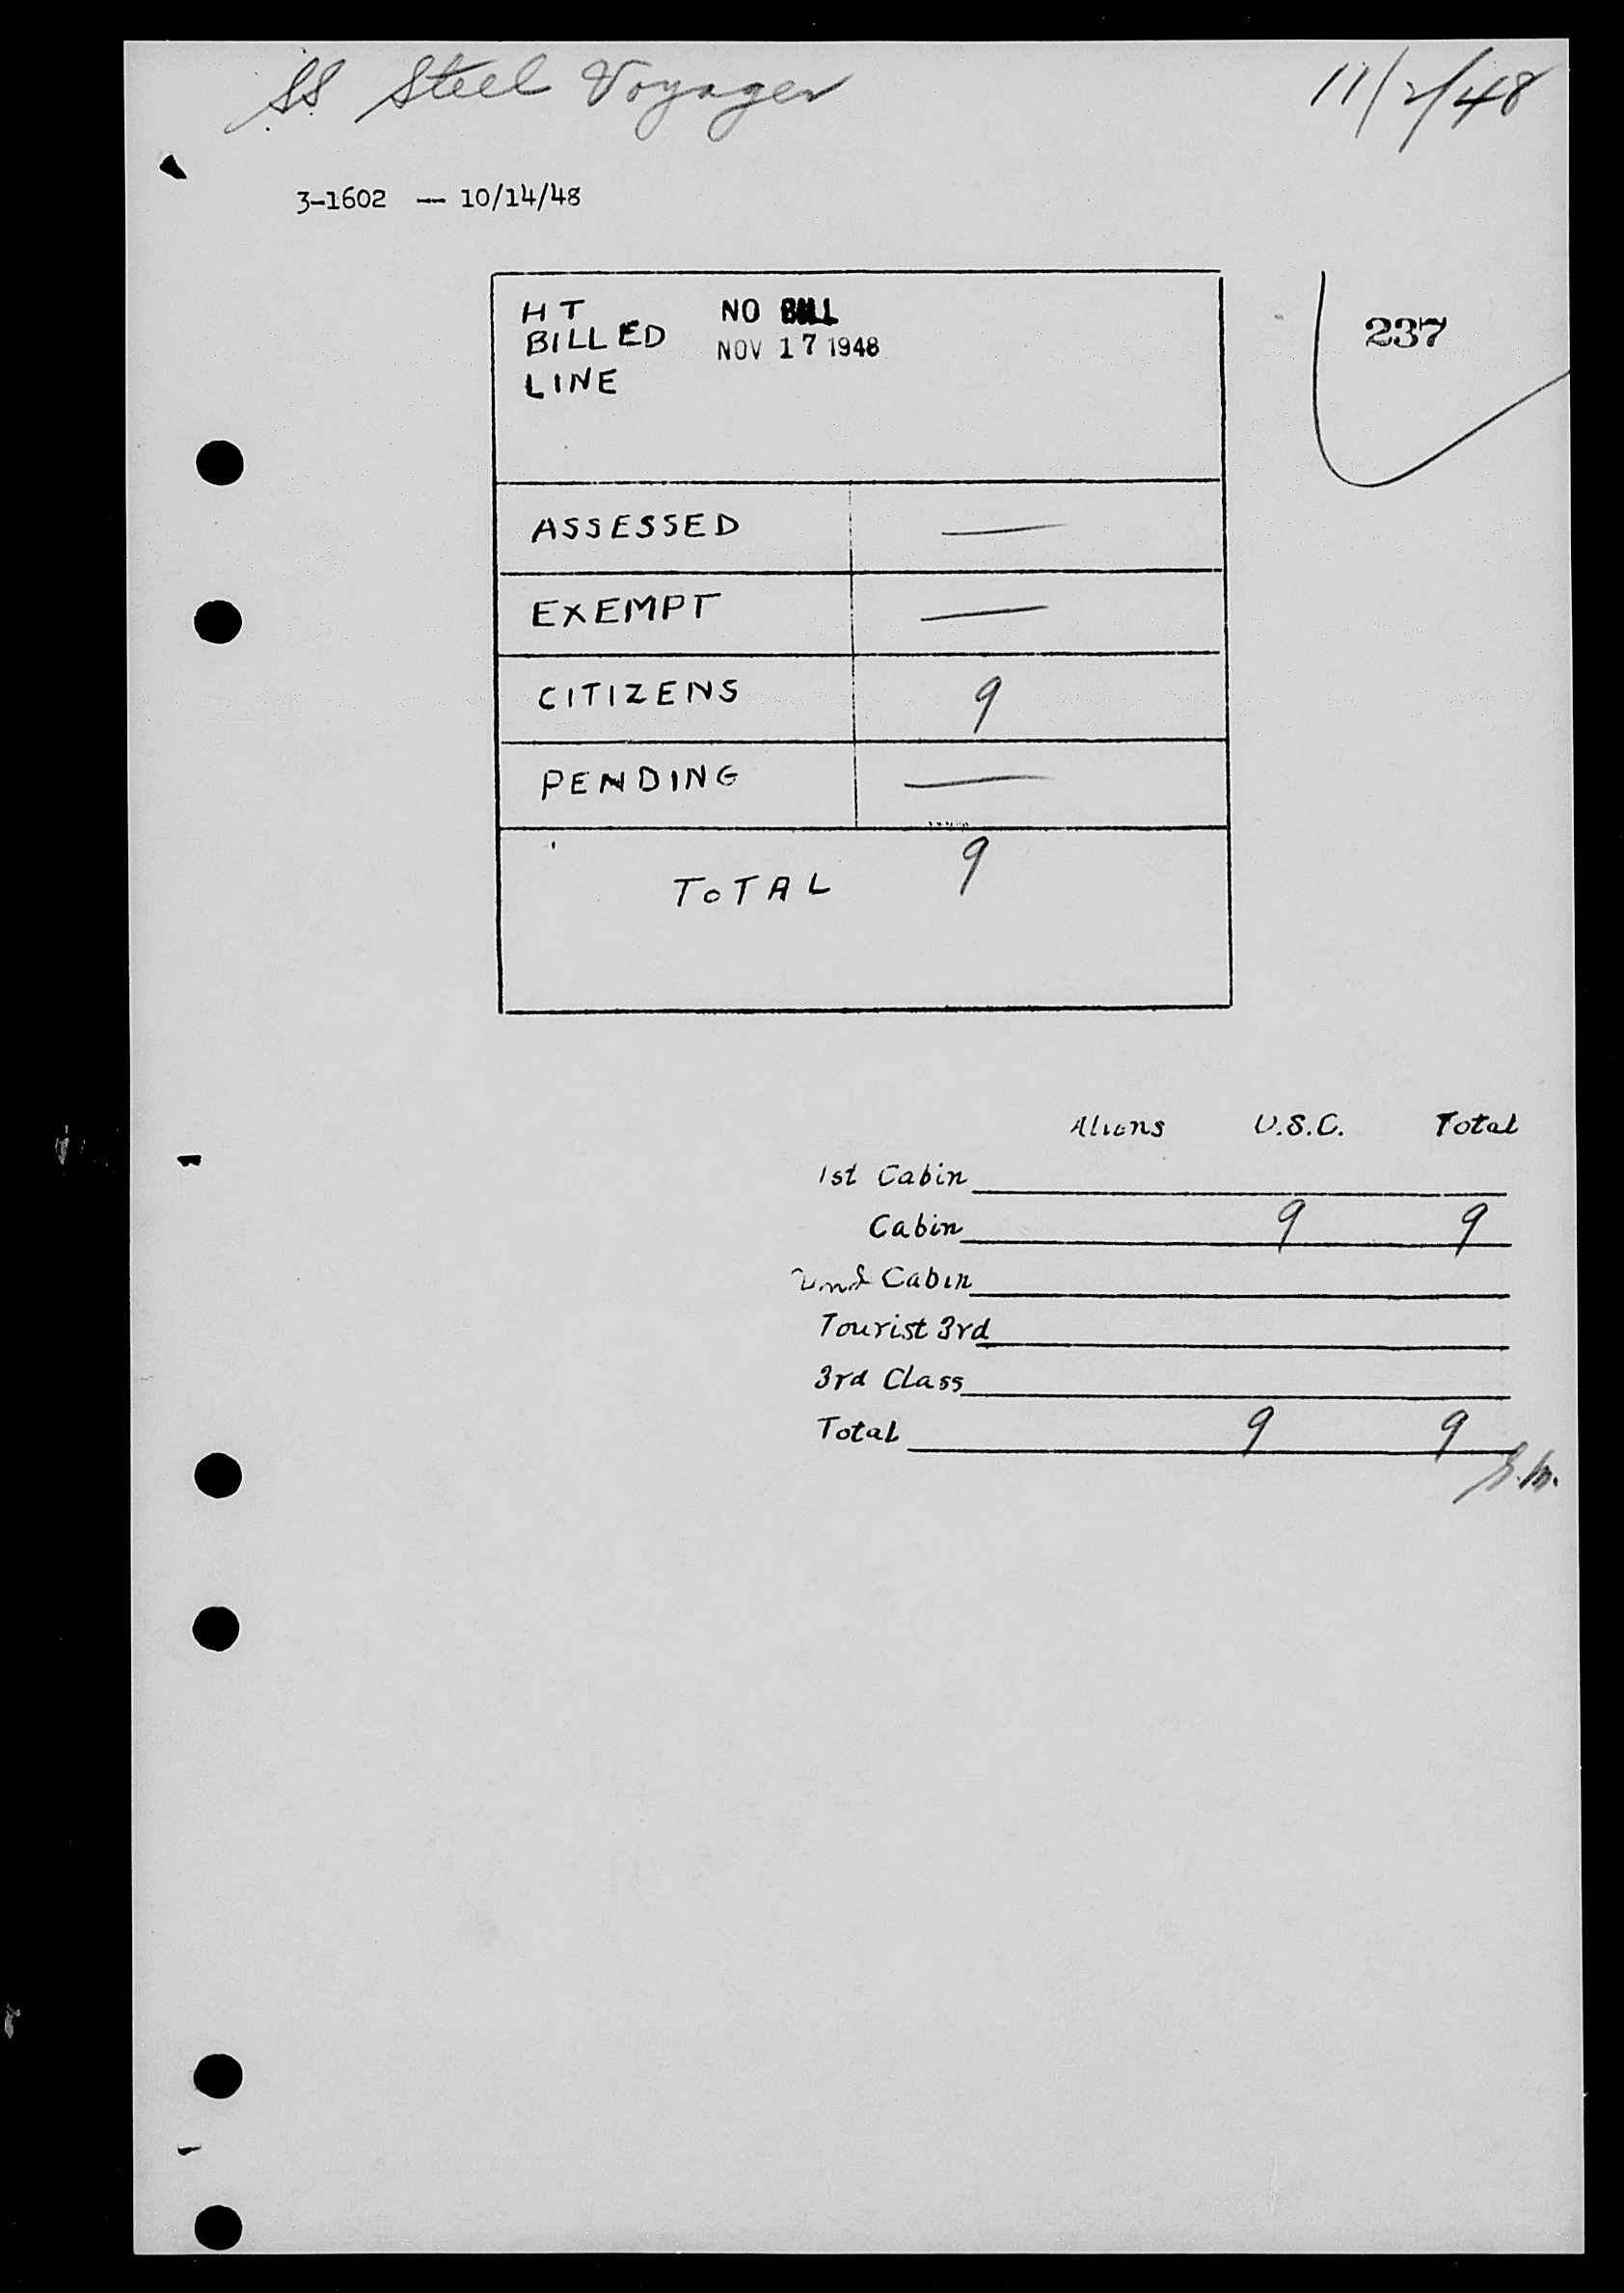 SS Steel Voyager 11/2/48
3-1602 — 10/14/48
237
HT NO BILL
BILLED NOV 17 1948
LINE
ASSESSED —
EXEMPT —
CITIZENS 9
PENDING —
TOTAL 9
Aliens U.S.C. Total
1st Cabin
Cabin 9 9
2nd Cabin
Tourist 3rd
3rd Class
Total 9 9